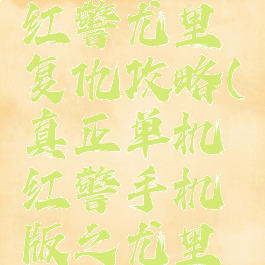 红警尤里
复仇攻略(
真正单机
红警手机
版之尤里